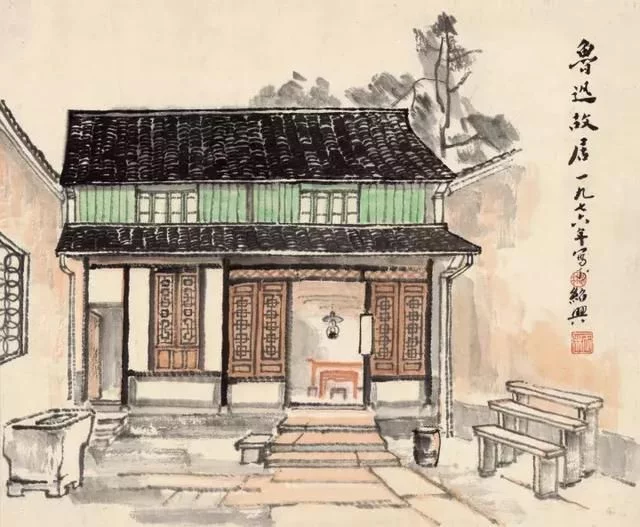 魯迅故居一九七六年寫於紹興